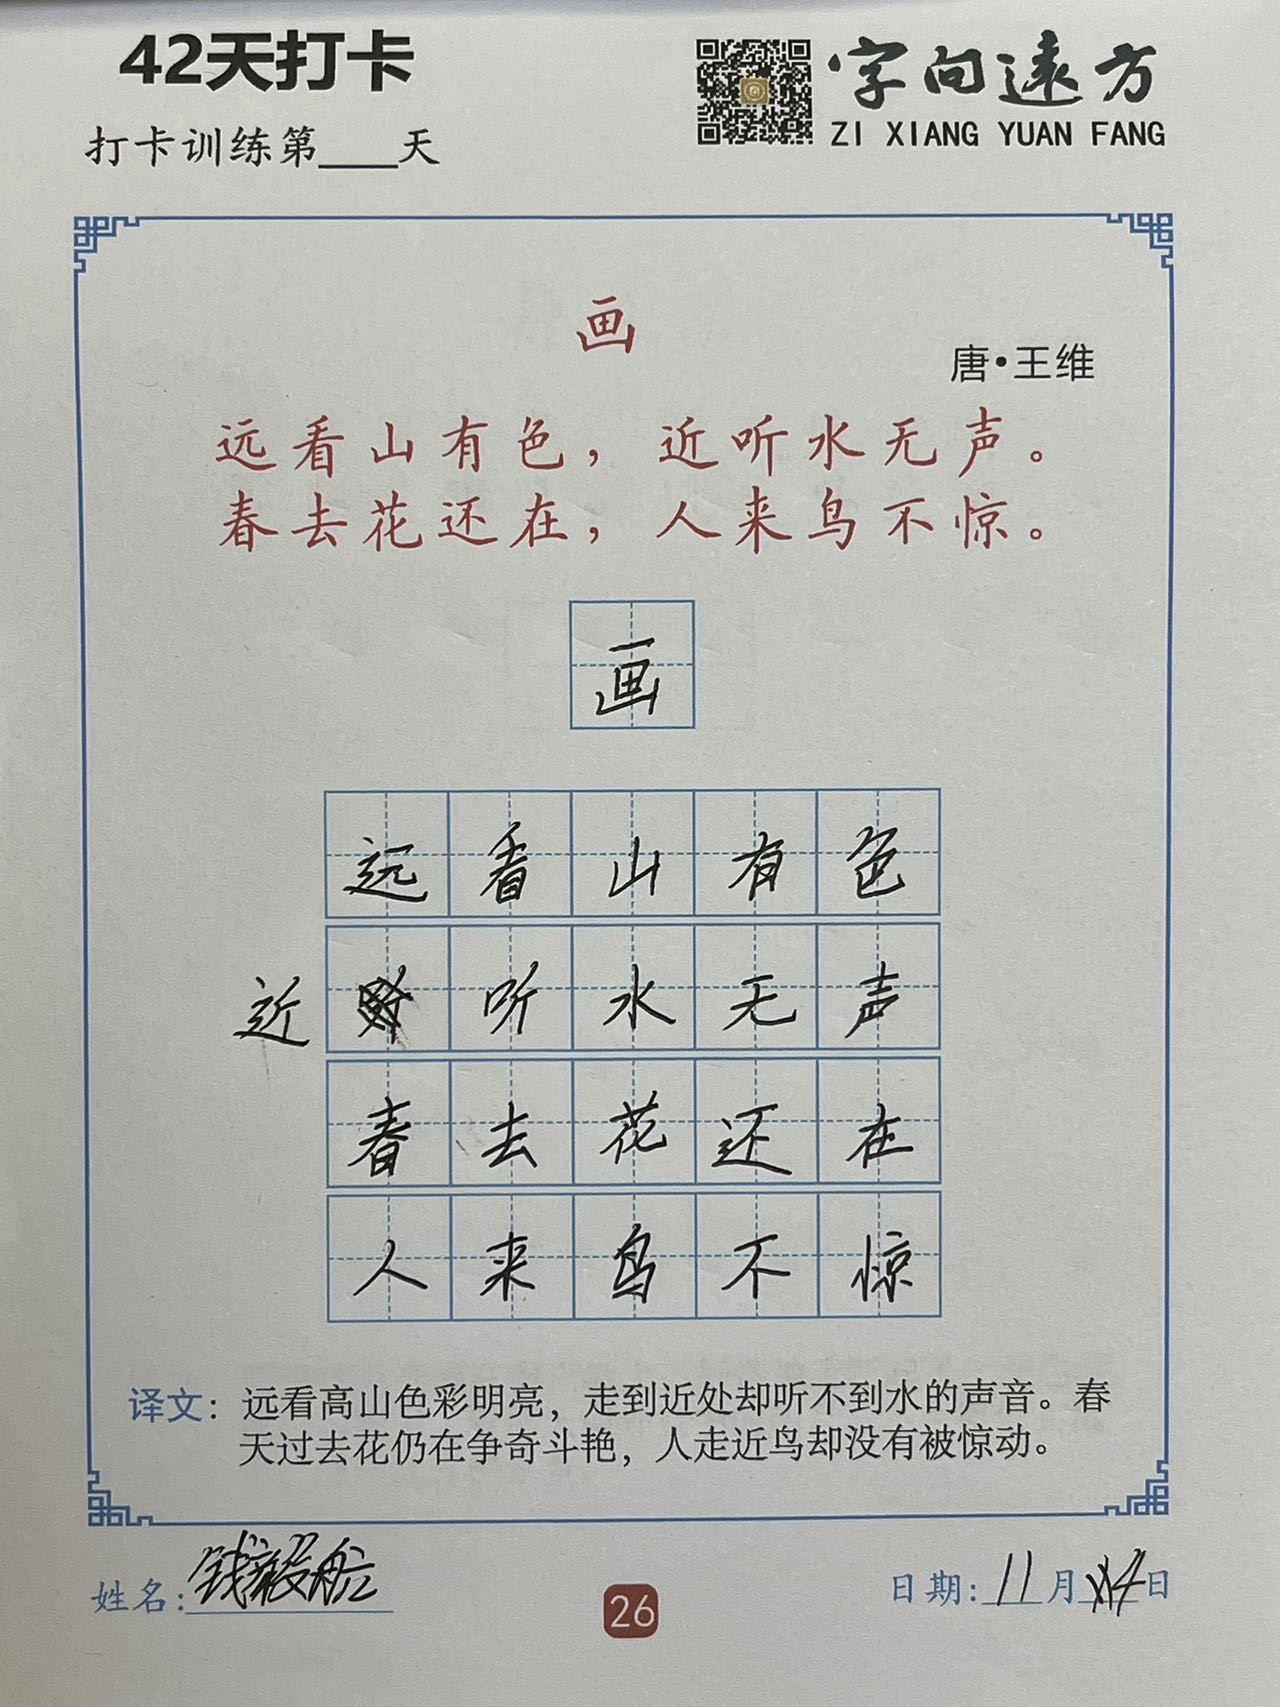 42天打卡
字向远方
ZI XIANG YUAN FANG
打卡训练第____天
画
唐·王维
远看山有色，近听水无声。
春去花还在，人来鸟不惊。
画
远看山有色
近 听水无声
春去花还在
人来鸟不惊
译文：远看高山色彩明亮，走到近处却听不到水的声音。春
天过去花仍在争奇斗艳，人走近鸟却没有被惊动。
姓名：钱毅船
日期：11月14日
26